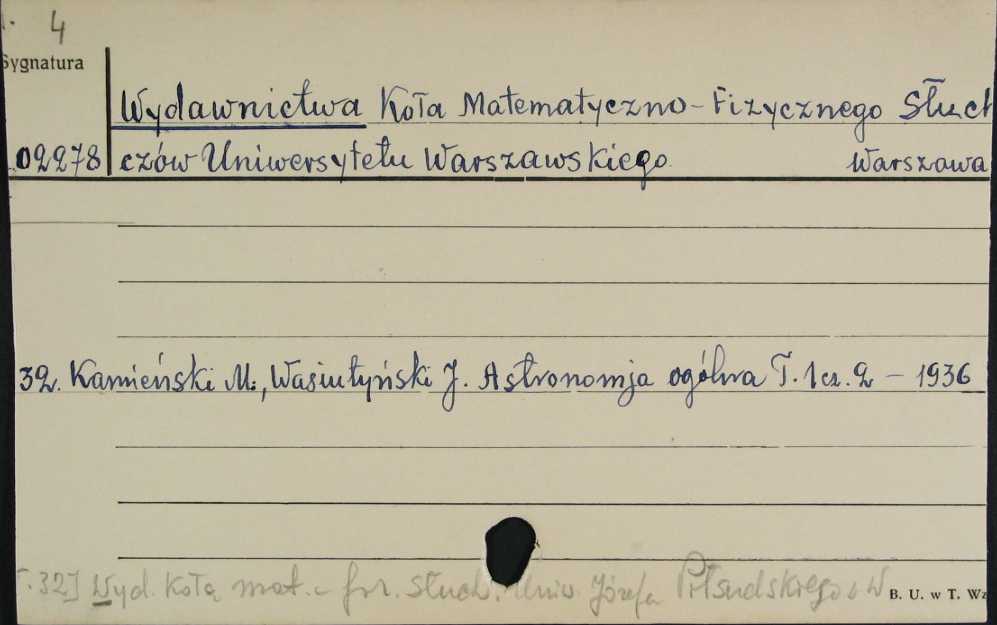 4
Sygnatura
Wydawnictwa Koła Matematyczno-Fizycznego Słuch
02278 czów Uniwersytetu Warszawskiego Warszawa
32. Kamieński M., Wasiutyński J. Astronomja ogólna T. 1 cz. 2 – 1936
32] Wyd. Koła mat. - fiz. Słuch. Uniw. Józefa Piłsudskiego w W
B. U. w T. Wz